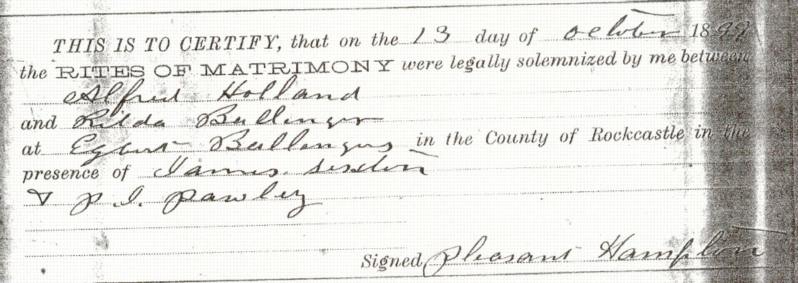 THIS IS TO CERTIFY, that on the 13 day of October 1899
the RITES OF MATRIMONY were legally solemnized by me between
Alfred Holland
and Rilda Bullinger
at Egbert Bullengers in the County of Rockcastle in the
presence of James Sexton
& P. I. Pawley
Signed, Pleasant Hampton